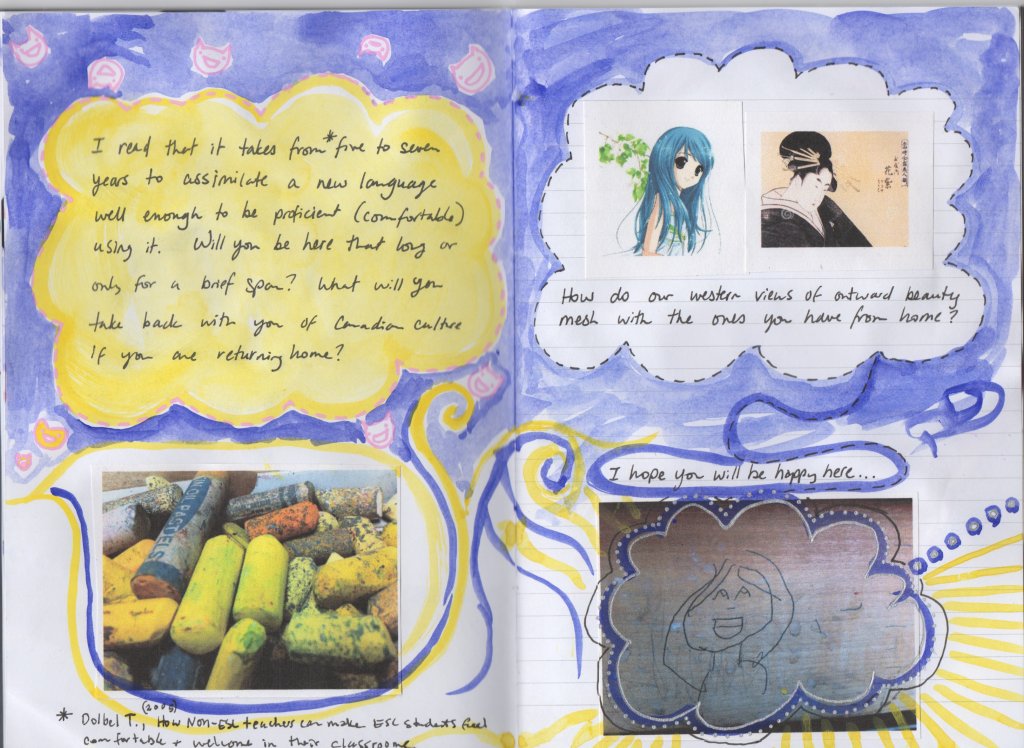 I read that it takes from * five to seven
years to assimilate a new language
well enough to be proficient (comfortable)
using it. Will you be here that long or
only for a brief span? What will you
take back with you of Canadian culture
if you are returning home?
How do our western views of outward beauty
mesh with the ones you have from home?
I hope you will be happy here...
PASTELS
* Dolbel T., (2005) How Non-ESL teachers can make ESL students feel
comfortable + welcome in their classrooms